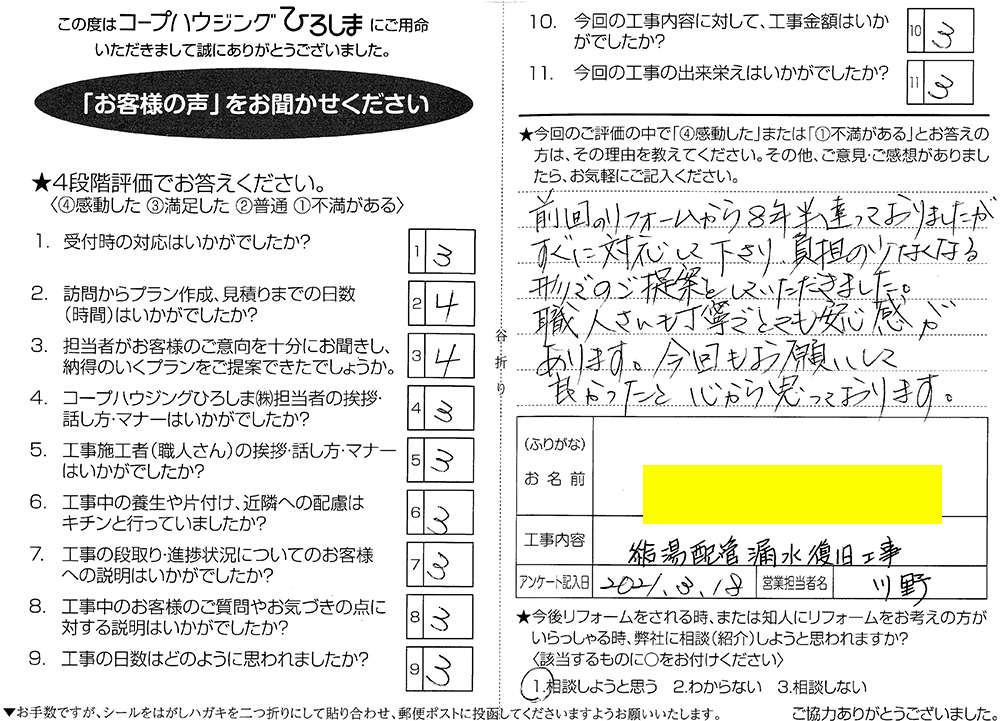 この度はコープハウジングひろしまにご用命
いただきまして誠にありがとうございました。
「お客様の声」をお聞かせください
★4段階評価でお答えください。
〈④感動した ③満足した ②普通 ①不満がある〉
1. 受付時の対応はいかがでしたか?
1 3
2. 訪問からプラン作成、見積りまでの日数
(時間)はいかがでしたか?
2 4
3. 担当者がお客様のご意向を十分にお聞きし、
納得のいくプランをご提案できたでしょうか。
3 4
4. コープハウジングひろしま㈱担当者の挨拶・
話し方・マナーはいかがでしたか?
4 3
5. 工事施工者(職人さん)の挨拶・話し方・マナー
はいかがでしたか?
5 3
6. 工事中の養生や片付け、近隣への配慮は
キチンと行っていましたか?
6 3
7. 工事の段取り・進捗状況についてのお客様
への説明はいかがでしたか?
7 3
8. 工事中のお客様のご質問やお気づきの点に
対する説明はいかがでしたか?
8 3
9. 工事の日数はどのように思われましたか?
9 3
谷・折・り
10. 今回の工事内容に対して、工事金額はいか
がでしたか?
10 3
11. 今回の工事の出来栄えはいかがでしたか?
11 3
★今回のご評価の中で「④感動した」または「①不満がある」とお答えの
方は、その理由を教えてください。その他、ご意見・ご感想がありまし
たら、お気軽にご記入ください。
前回のリフォームから8年半達っておりましたが
すぐに対応して下さり 負担の少なくなる
形でのご提案をしていただきました。
職人さんも丁寧でとても安心感が
あります。今回もお願いして
良かったと 心から思っております。
(ふりがな)
お名前
工事内容 給湯配管漏水復旧工事
アンケート記入日 2021.3.18 営業担当者名 川野
★今後リフォームをされる時、または知人にリフォームをお考えの方が
いらっしゃる時、弊社に相談(紹介)しようと思われますか?
〈該当するものに○をお付けください〉
1.相談しようと思う 2.わからない 3.相談しない
▼お手数ですが、シールをはがしハガキを二つ折りにして貼り合わせ、郵便ポストに投函してくださいますようお願いいたします。
ご協力ありがとうございました。